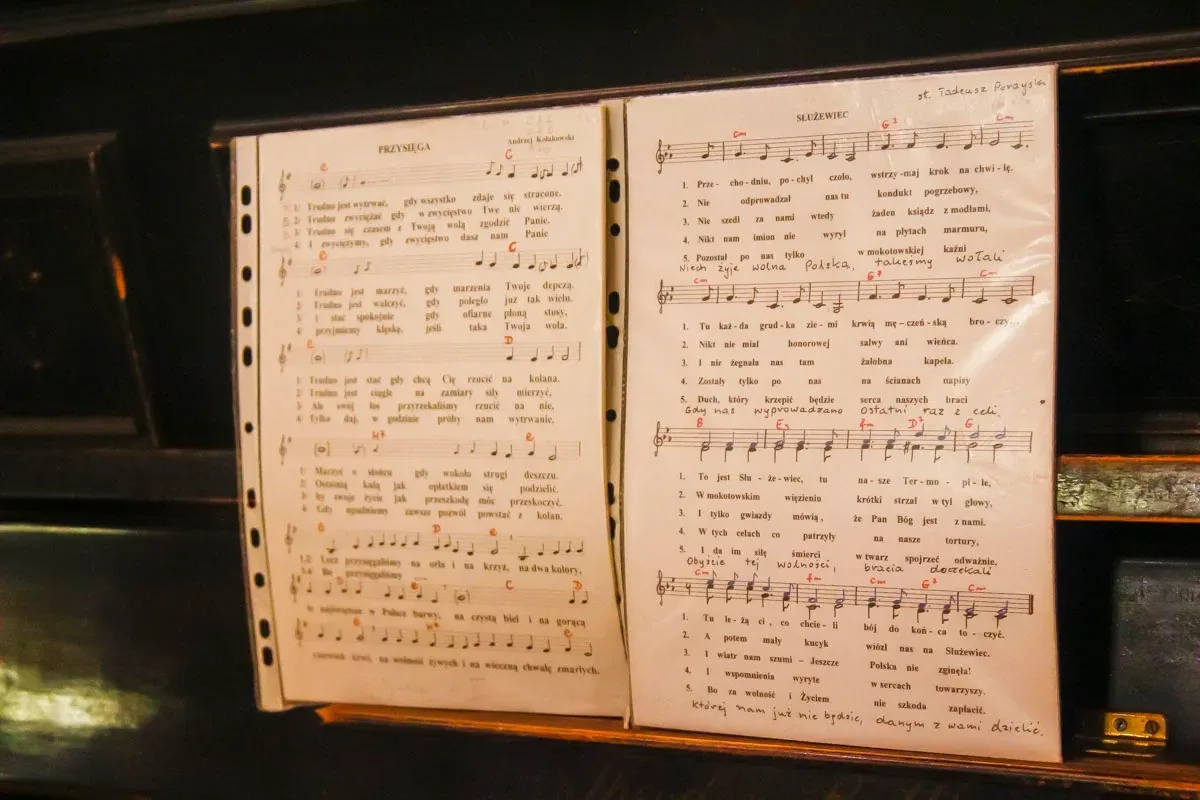 PRZYSIĘGA
Andrzej Kołakowski
e C
1: Trudno jest wytrwać, gdy wszystko zdaje się stracone.
2: Trudno zwyciężać gdy w zwycięstwo Twe nie wierzą.
3: Trudno się czasem z Twoją wolą zgodzić Panie.
4: I zwyciężymy, gdy zwycięstwo dasz nam Panie
e C
1: Trudno jest marzyć, gdy marzenia Twoje depczą.
2: Trudno jest walczyć, gdy poległo już tak wielu.
3: i stać spokojnie gdy ofiarne płoną stosy,
4: przyjmiemy klęskę, jeśli taka Twoja wola.
e D
1: Trudno jest stać gdy chcą Cię rzucić na kolana.
2: Trudno jest ciągle na zamiary siły mierzyć,
3: Ale swój los przyrzekaliśmy rzucić na nie,
4: Tylko daj, w godzinie próby nam wytrwanie.
H⁷ e
1: Marzyć o słońcu gdy wokoło strugi deszczu.
2: Ostatnią kulą jak opłatkiem się podzielić.
3: by swoje życie jak przeszkodę móc przeskoczyć.
4: Gdy upadniemy zawsze pozwól powstać z kolan.
G D e
1.2: Lecz przysięgaliśmy na orła i na krzyż, na dwa kolory,
3.4: Bo przysięgaliśmy
D e C D
te najświętsze w Polsce barwy, na czystą biel i na gorącą
G H⁷ e
czerwień krwi, na wolność żywych i na wieczną chwałę zmarłych.
sł. Tadeusz Porayski
SŁUŻEWIEC
cm G⁷ cm
1. Prze - cho - dniu, po - chyl czoło, wstrzy - maj krok na chwi - lę.
2. Nie odprowadzał nas tu kondukt pogrzebowy,
3. Nie szedł za nami wtedy żaden ksiądz z modłami,
4. Nikt nam imion nie wyrył na płytach marmuru,
5. Pozostał po nas tylko w mokotowskiej kaźni
Niech żyje wolna Polska, takeśmy wołali
cm G⁷ cm
1. Tu każ - da grud - ka zie - mi krwią mę - czeń - ską bro - czy...
2. Nikt nie miał honorowej salwy ani wieńca.
3. I nie żegnała nas tam żałobna kapela.
4. Zostały tylko po nas na ścianach napisy
5. Duch, który krzepić będzie serca naszych braci
Gdy nas wyprowadzano ostatni raz z celi,
B Es fm D⁷ G
1. To jest Słu - że - wiec, tu na - sze Ter - mo - pi - le,
2. W mokotowskim więzieniu krótki strzał w tył głowy,
3. I tylko gwiazdy mówią, że Pan Bóg jest z nami.
4. W tych celach co patrzyły na nasze tortury,
5. I da im siłę śmierci w twarz spojrzeć odważnie,
Obyście tej wolności, bracia doczekali
cm fm cm G⁷ cm
1. Tu le - żą ci, co chcie - li bój do koń - ca to - czyć.
2. A potem mały kucyk wiózł nas na Służewiec.
3. I wiatr nam szumi – Jeszcze Polska nie zginęła!
4. I wspomnienia wyryte w sercach towarzyszy.
5. Bo za wolność i Życiem nie szkoda zapłacić.
której nam już nie będzie, danym z wami dzielić.